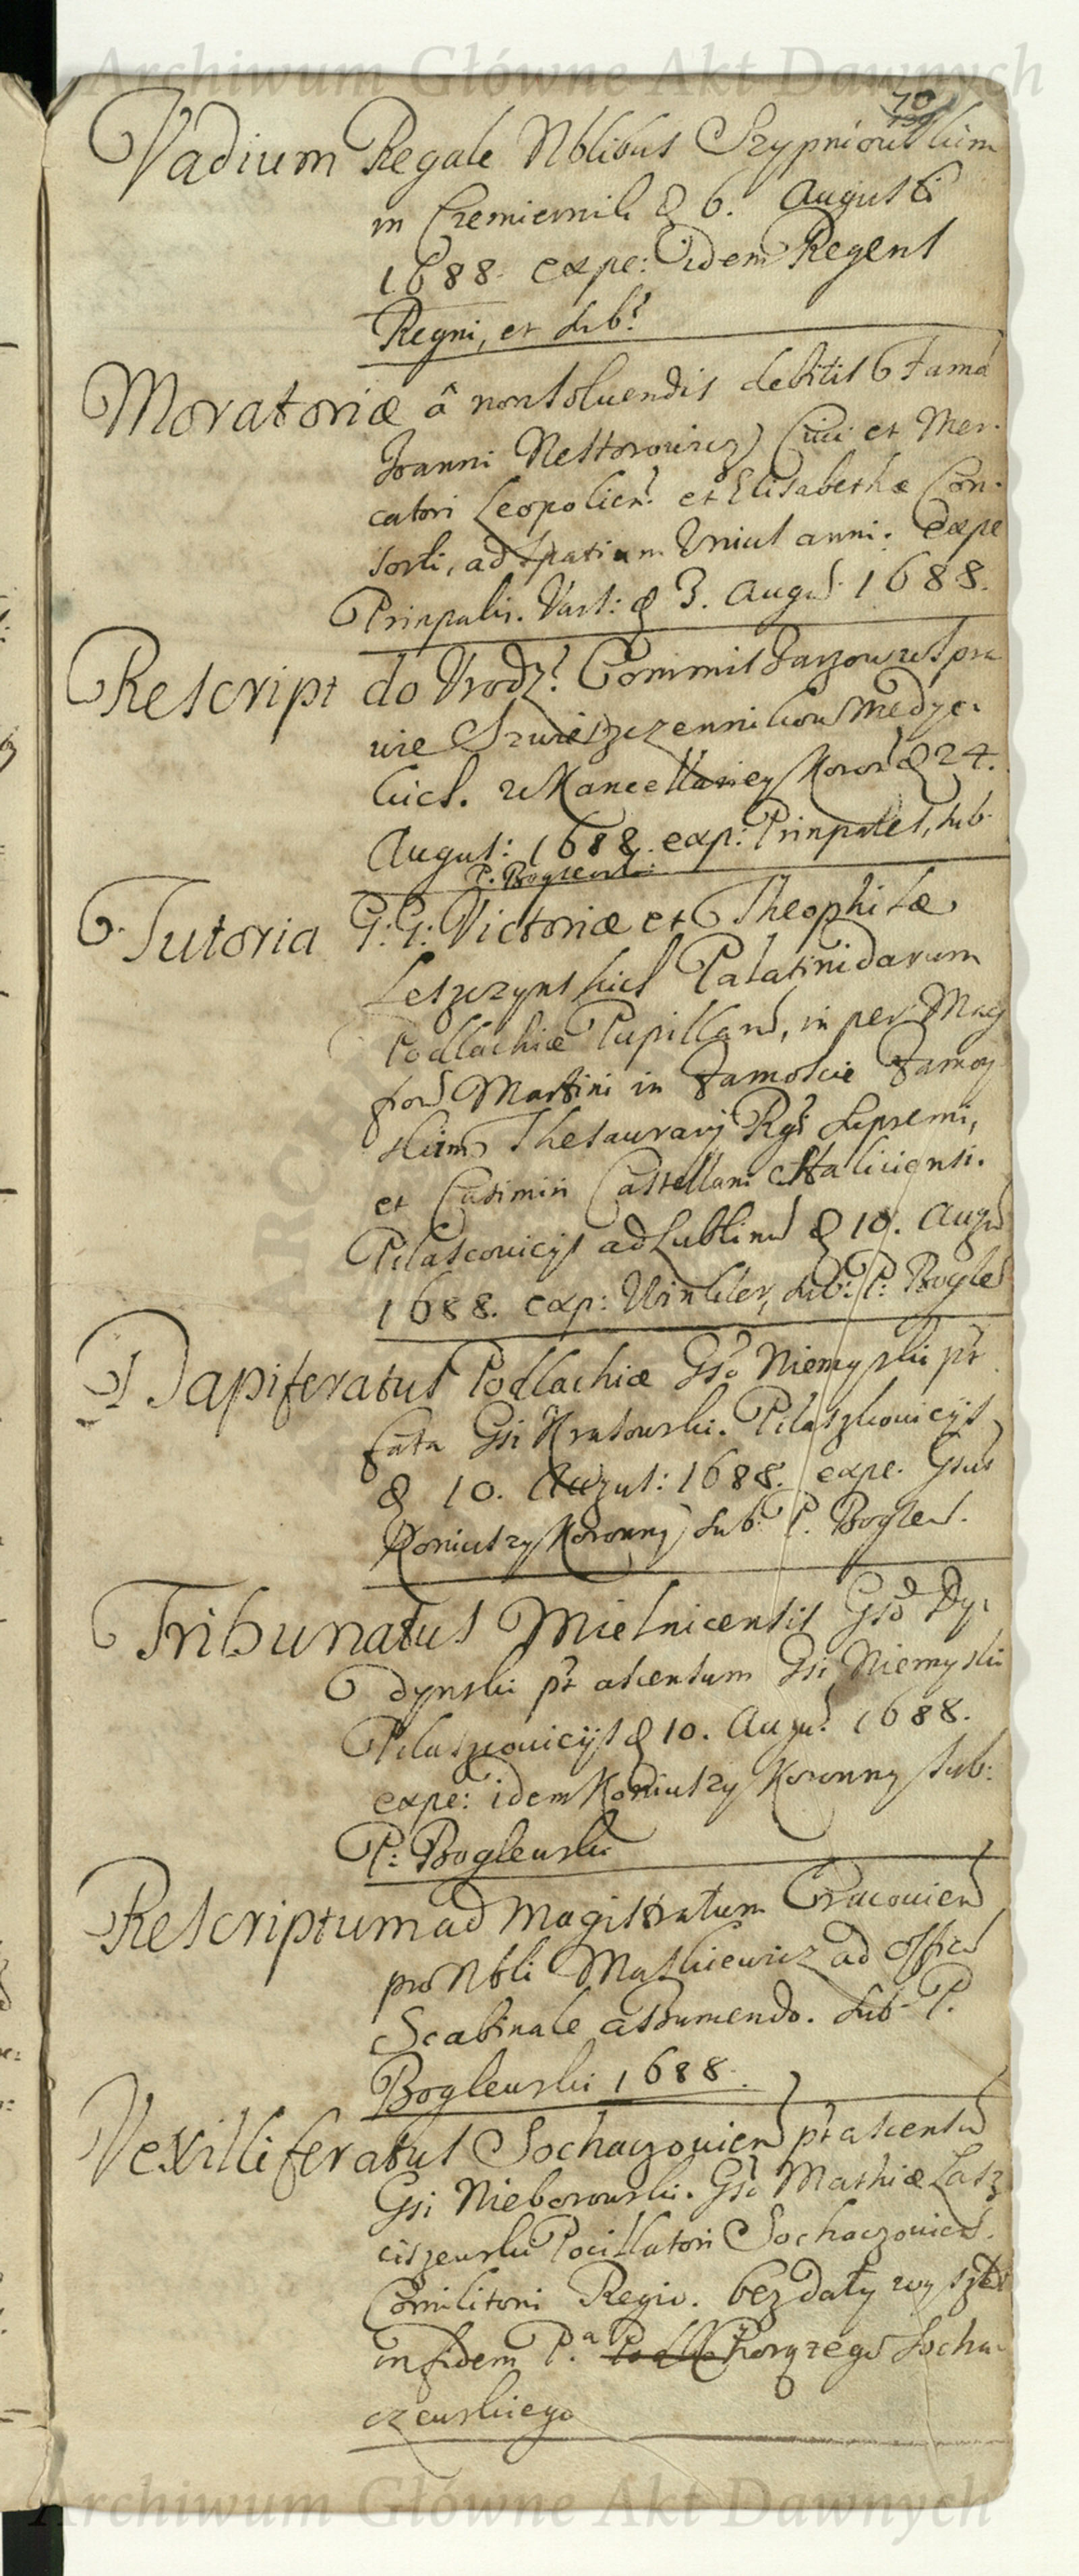 Archiwum Główne Akt Dawnych
70
Vadium Regale Nblibus Szypniowskim
in Czemiernik d 6. Augusti
1688. expe: idem Regent
Regni, et sub?
Moratoriæ â non soluendis debitis Fama
Joanni Nestorowicz Ciui et Mer-
catori Leopolien? et Elisabethæ Con-
sorti, ad spatium Unius anni. Expe
Prinpalis. Vars: d 3. Augu 1688.
Rescript do Vrodz? Commissarzow w spra
wie Szwieszczennikow Medyc-
kich. z Kancellariey Koron d 24.
August: 1688. exp: Prinpales, sub
P. Boglewski
Tutoria G: G: Victoriæ et Theophilæ
Leszczynskich Palatinidarum
Podlachiæ Pupillarū, in per Mag
frow Martini in Zamoście Zamoy
skim Thesaurarij Rgi Supremi,
et Casimiri Castellani Haliciensi.
Pilascovicijs ad Lublinū d 10. Augu
1688. exp: Winkler, sub: P: Bogle
Dapiferatus Podlachiæ Gso Niemyski pt
fata Gsi Krutowski. Pilaszkovicijs
d 10. August: 1688. expe. Gsus
Koniuszy Koronny sub P. Boglew.
Tribunatus Mielnicensis Gso Dy-
dynski pt ascensum Gsi Niemyski
Pilaszcovicijs d 10. Augu? 1688.
expe: idem Koniuszy Koronny sub:
P: Boglewski
Rescriptum ad Magistratum Cracovien
pro Nbli Maskiewicz ad offici
Scabinale assumendo. sub P.
Boglewski 1688.
Vexilliferatus Sochaczovien pt ascensu
Gsi Nieborowski. Gso Mathiæ Lasz
ciszewski Pocillatori Sochaczovien.
Comilitoni Regio. bez daty wyszed
in fidem P.a Podcz Chorązego Socha
czewskiego
Archiwum Główne Akt Dawnych